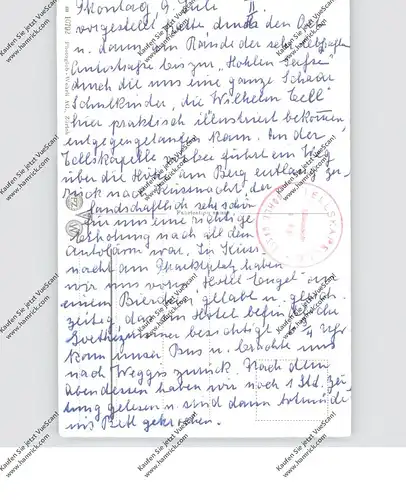 Montag 9. Juli II.
vorgestellt hatte durch den Ort
u. dann am Rande der sehr lebhaften
Autostraße bis zur „Hohlen Gasse“
durch die uns eine ganze Schaar
Schulkinder, die Wilhelm Tell
hier praktisch illustriert bekommen
entgegengelaufen kam. An der
Tellskapelle vorbei führt ein Weg
über die Höhe am Berg entlang zu-
rück nach Küssnacht, der
landschaftlich sehr schön
für uns eine richtige
Erholung nach all dem
Autolärm war. In Küss
nacht am Marktplatz haben
wir uns vorm „Hotel Engel“ mit
einem Bierchen gelabt u. gleich-
zeitig das im Hotel befindliche
Goethezimmer besichtigt. 4 Uhr
kam unser Bus u. brachte uns
nach Weggis zurück. Nach dem
Abendessen haben wir noch 1 Std. Zei-
tung gelesen u. sind dann totmüde
ins Bett gekrochen.
Photoglob-Wehrli AG., Zürich
Kaufen Sie jetzt VueScan!
www.hamrick.com